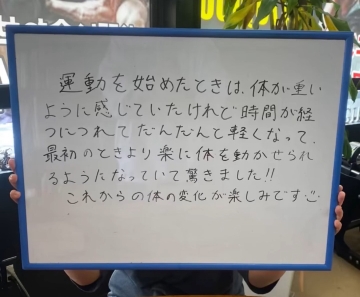 運動を始めたときは、体が重い
ように感じていたけれど時間が経
つにつれてだんだんと軽くなって、
最初のときより楽に体を動かせられ
るようになっていて驚きました!!
これからの体の変化が楽しみです